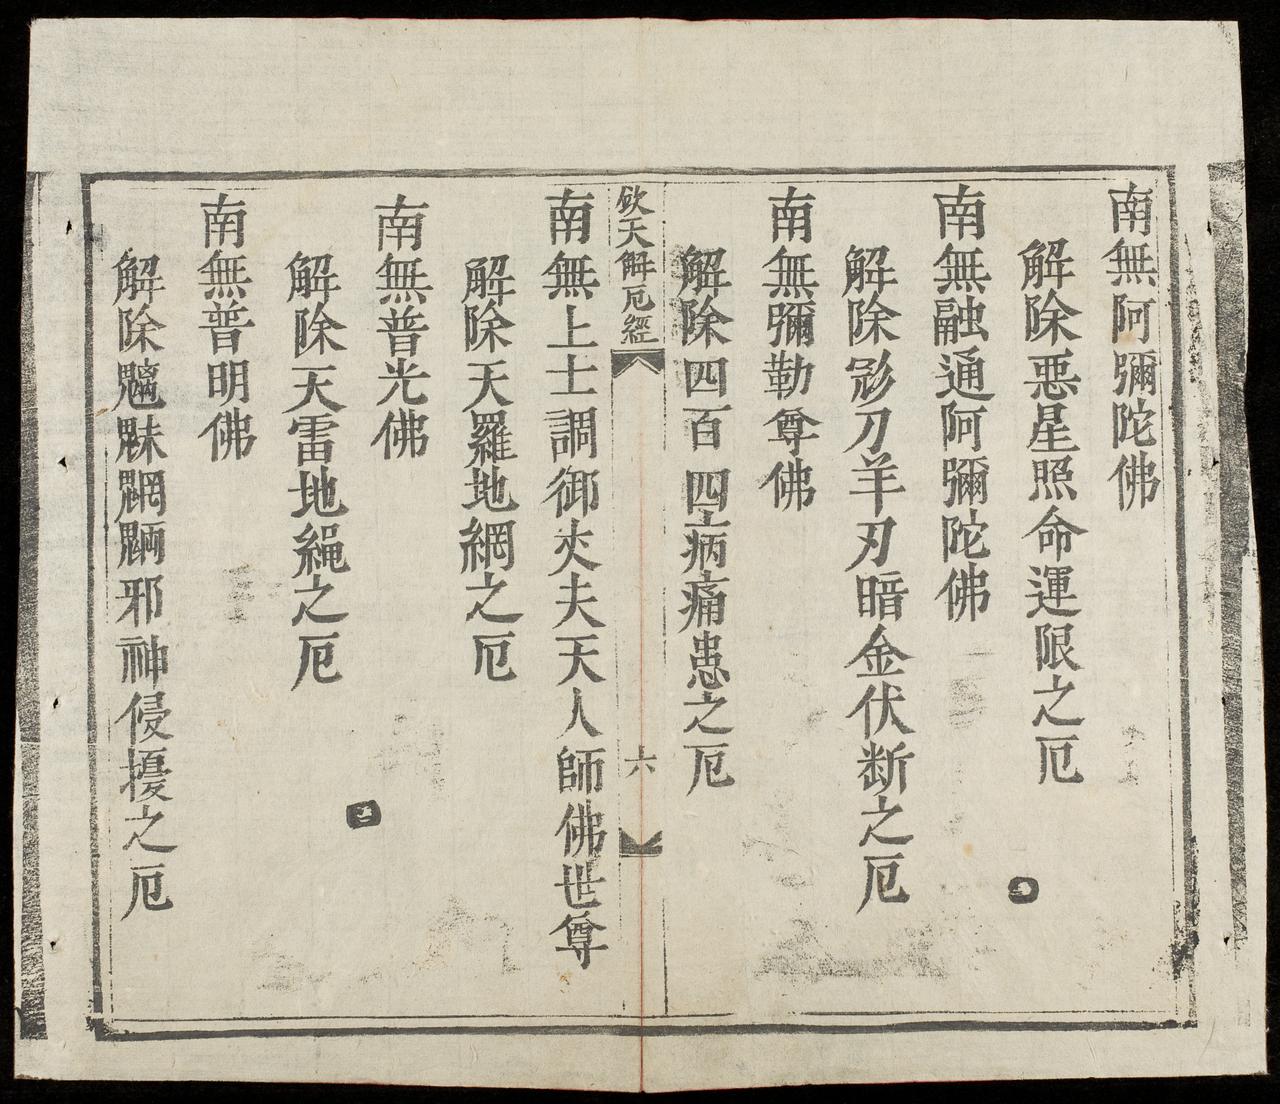 南無阿彌陀佛
解除惡星照命運限之厄
南無融通阿彌陀佛
解除飛刀羊刃暗金伏断之厄
南無彌勒尊佛
解除四百四病痛患之厄
欽天解厄經
六
南無上士調御丈夫天人師佛世尊
解除天羅地網之厄
南無普光佛
解除天雷地繩之厄
南無普明佛
解除魑魅魍魎邪神侵擾之厄